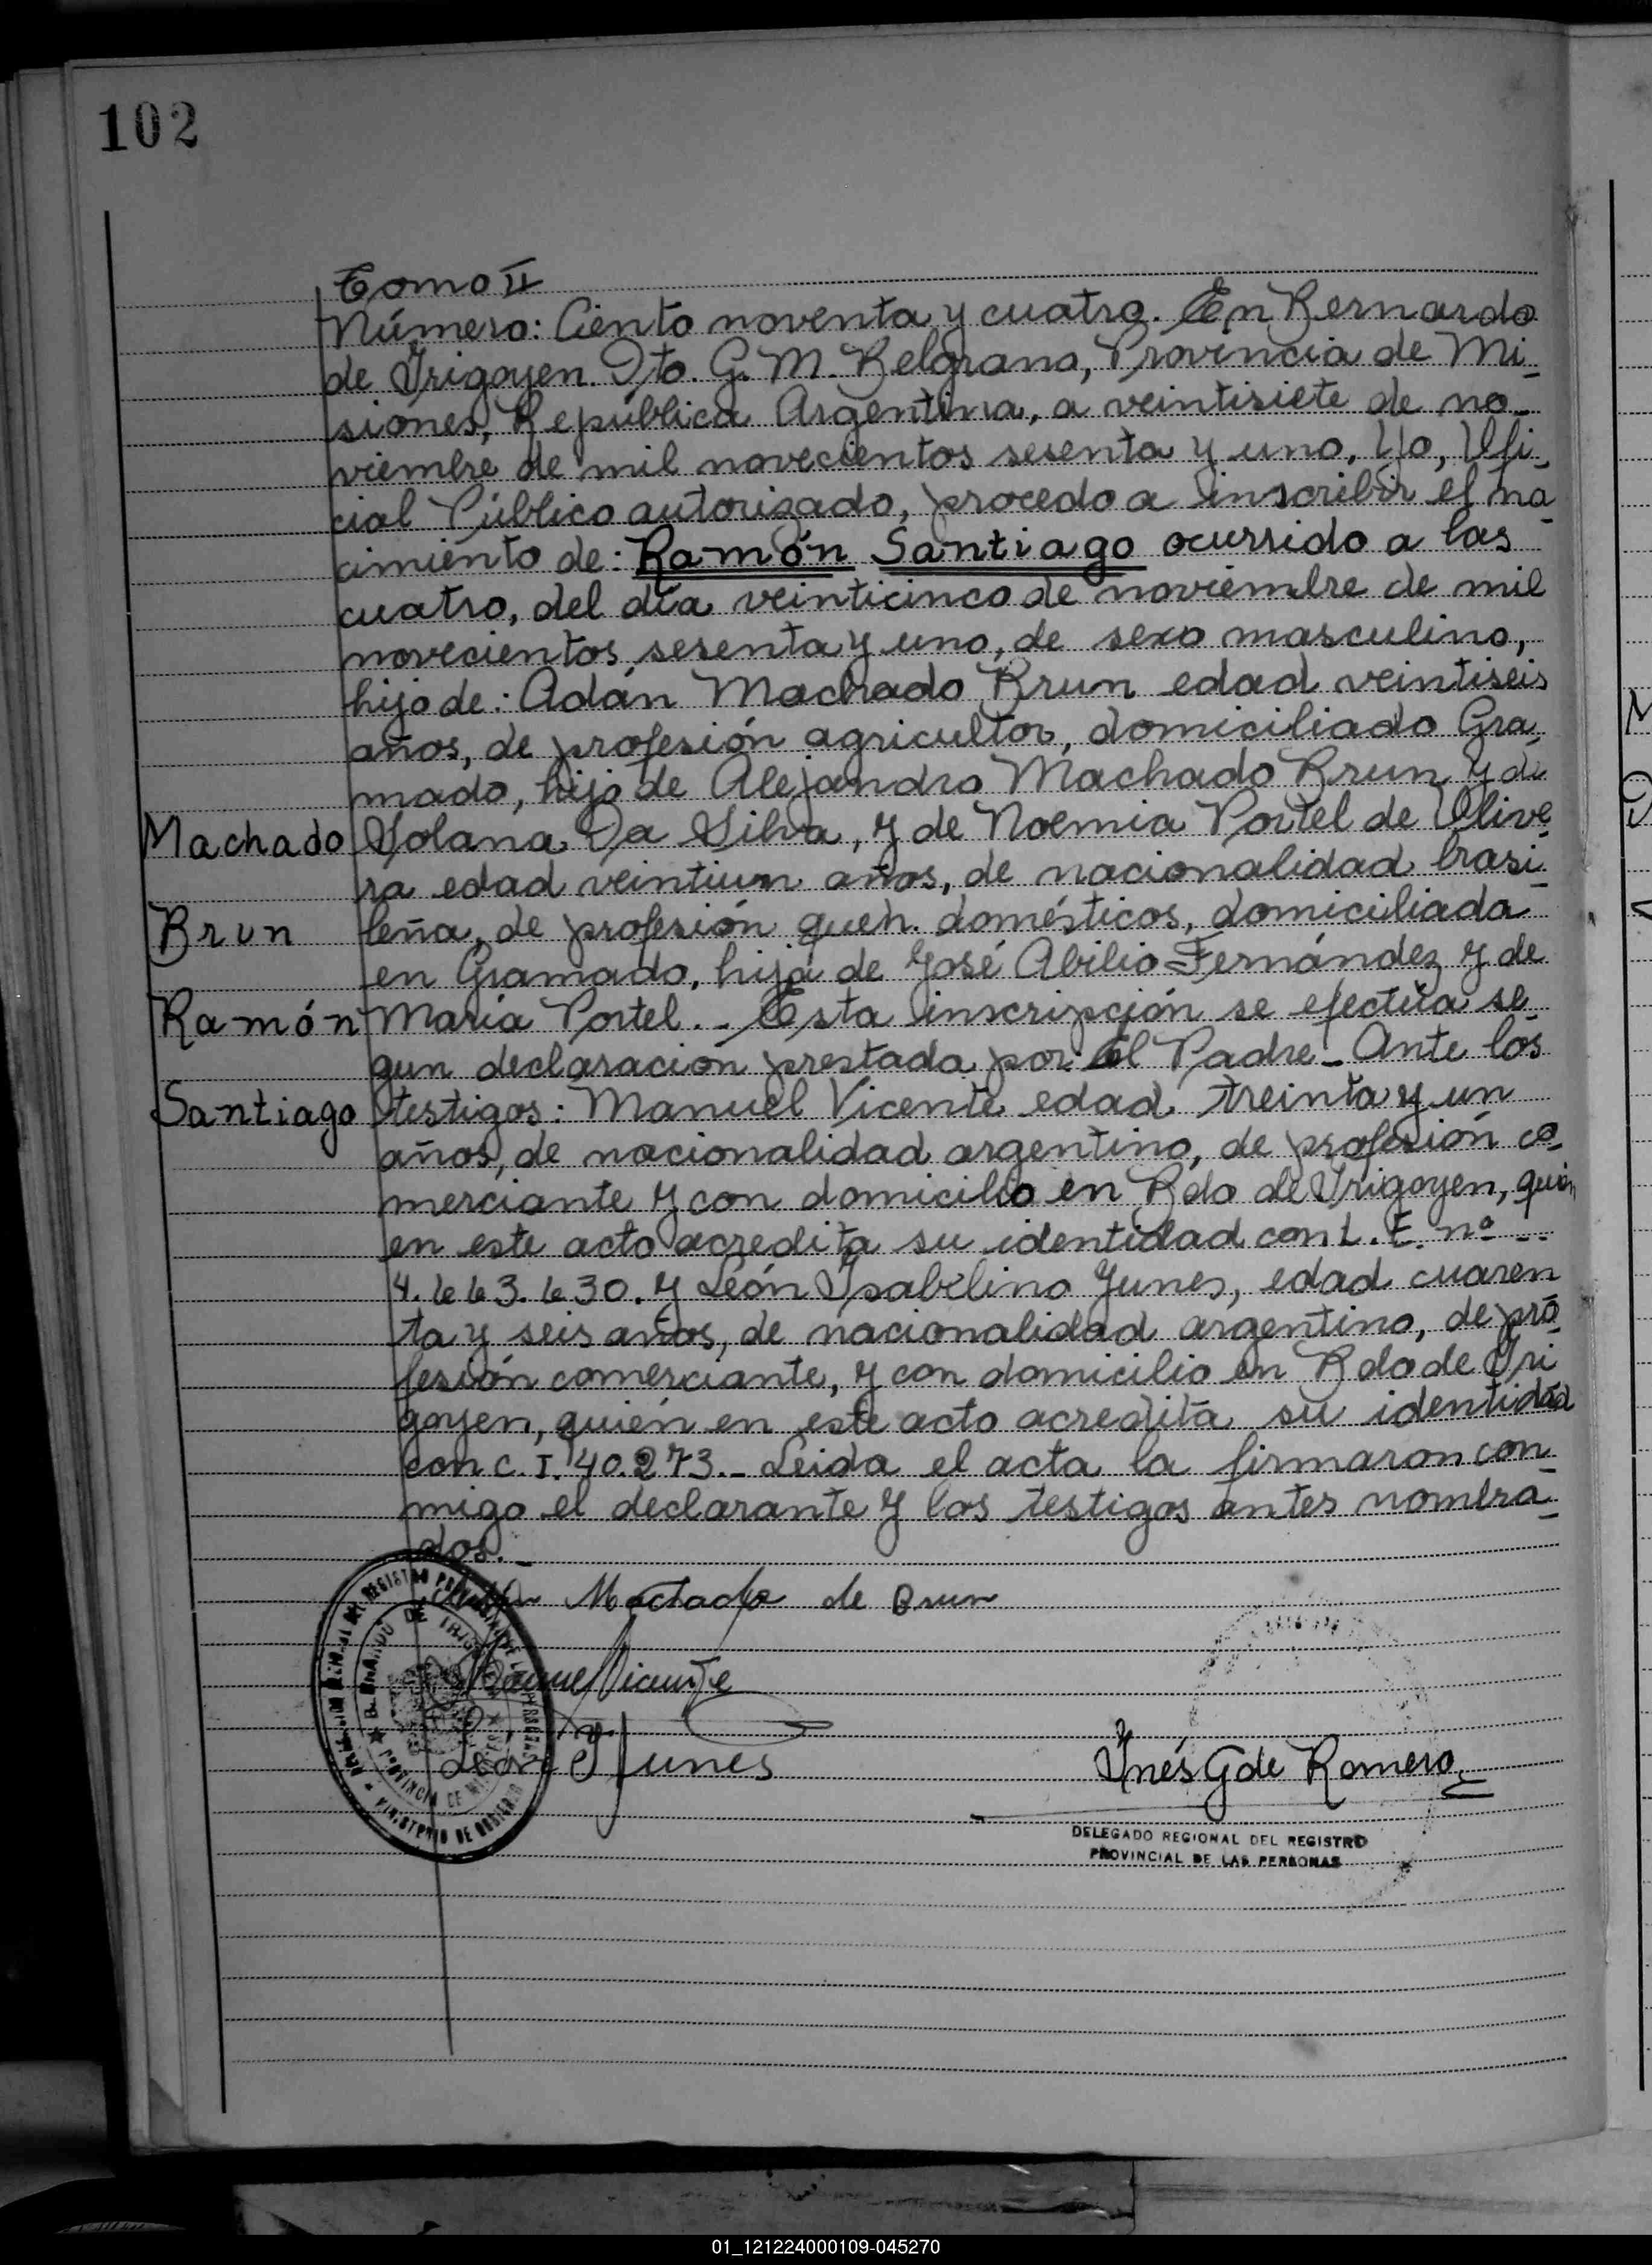 102
Tomo II
Número: Ciento noventa y cuatro. En Bernardo
de Irigoyen. Dto. G. M. Belgrano, Provincia de Mi-
siones, República Argentina, a veintisiete de no-
viembre de mil novecientos sesenta y uno, Yo, Ofi-
cial Público autorizado, procedo a inscribir el na-
cimiento de: Ramón Santiago ocurrido a las
cuatro, del día veinticinco de noviembre de mil
novecientos sesenta y uno, de sexo masculino,
hijo de: Adán Machado Brun edad veintiseis
años, de profesión agricultor, domiciliado Gra-
mado, hijo de Alejandro Machado Brun y de
Machado Solana Da Silva, y de Noemia Portel de Olive-
ra edad veintiun años, de nacionalidad brasi-
Brun leña, de profesión queh. domésticos, domiciliada
en Gramado, hija de José Abilio Fernández y de
Ramón María Portel._ Esta inscripción se efectúa se-
gun declaración prestada por: El Padre_ Ante los
Santiago testigos: Manuel Vicente edad treinta y un
años, de nacionalidad argentino, de profesión co-
merciante y con domicilio en Bdo de Irigoyen, quien
en este acto acredita su identidad con L. E. nº --
4.663.630. y León Ysabelino Yunes, edad cuaren
ta y seis años, de nacionalidad argentino, de pro-
fesión comerciante, y con domicilio en Bdo de Iri
goyen, quién en este acto acredita su identidad
con C. I. 40.273._ Leida el acta la firmaron con-
migo el declarante y los testigos antes nombra-
dos._
Machado de Brun
Manuel Vicente
León Y Yunes
Inés G de Romero
DELEGADO REGIONAL DEL REGISTRO
PROVINCIAL DE LAS PERSONAS
01_121224000109-045270